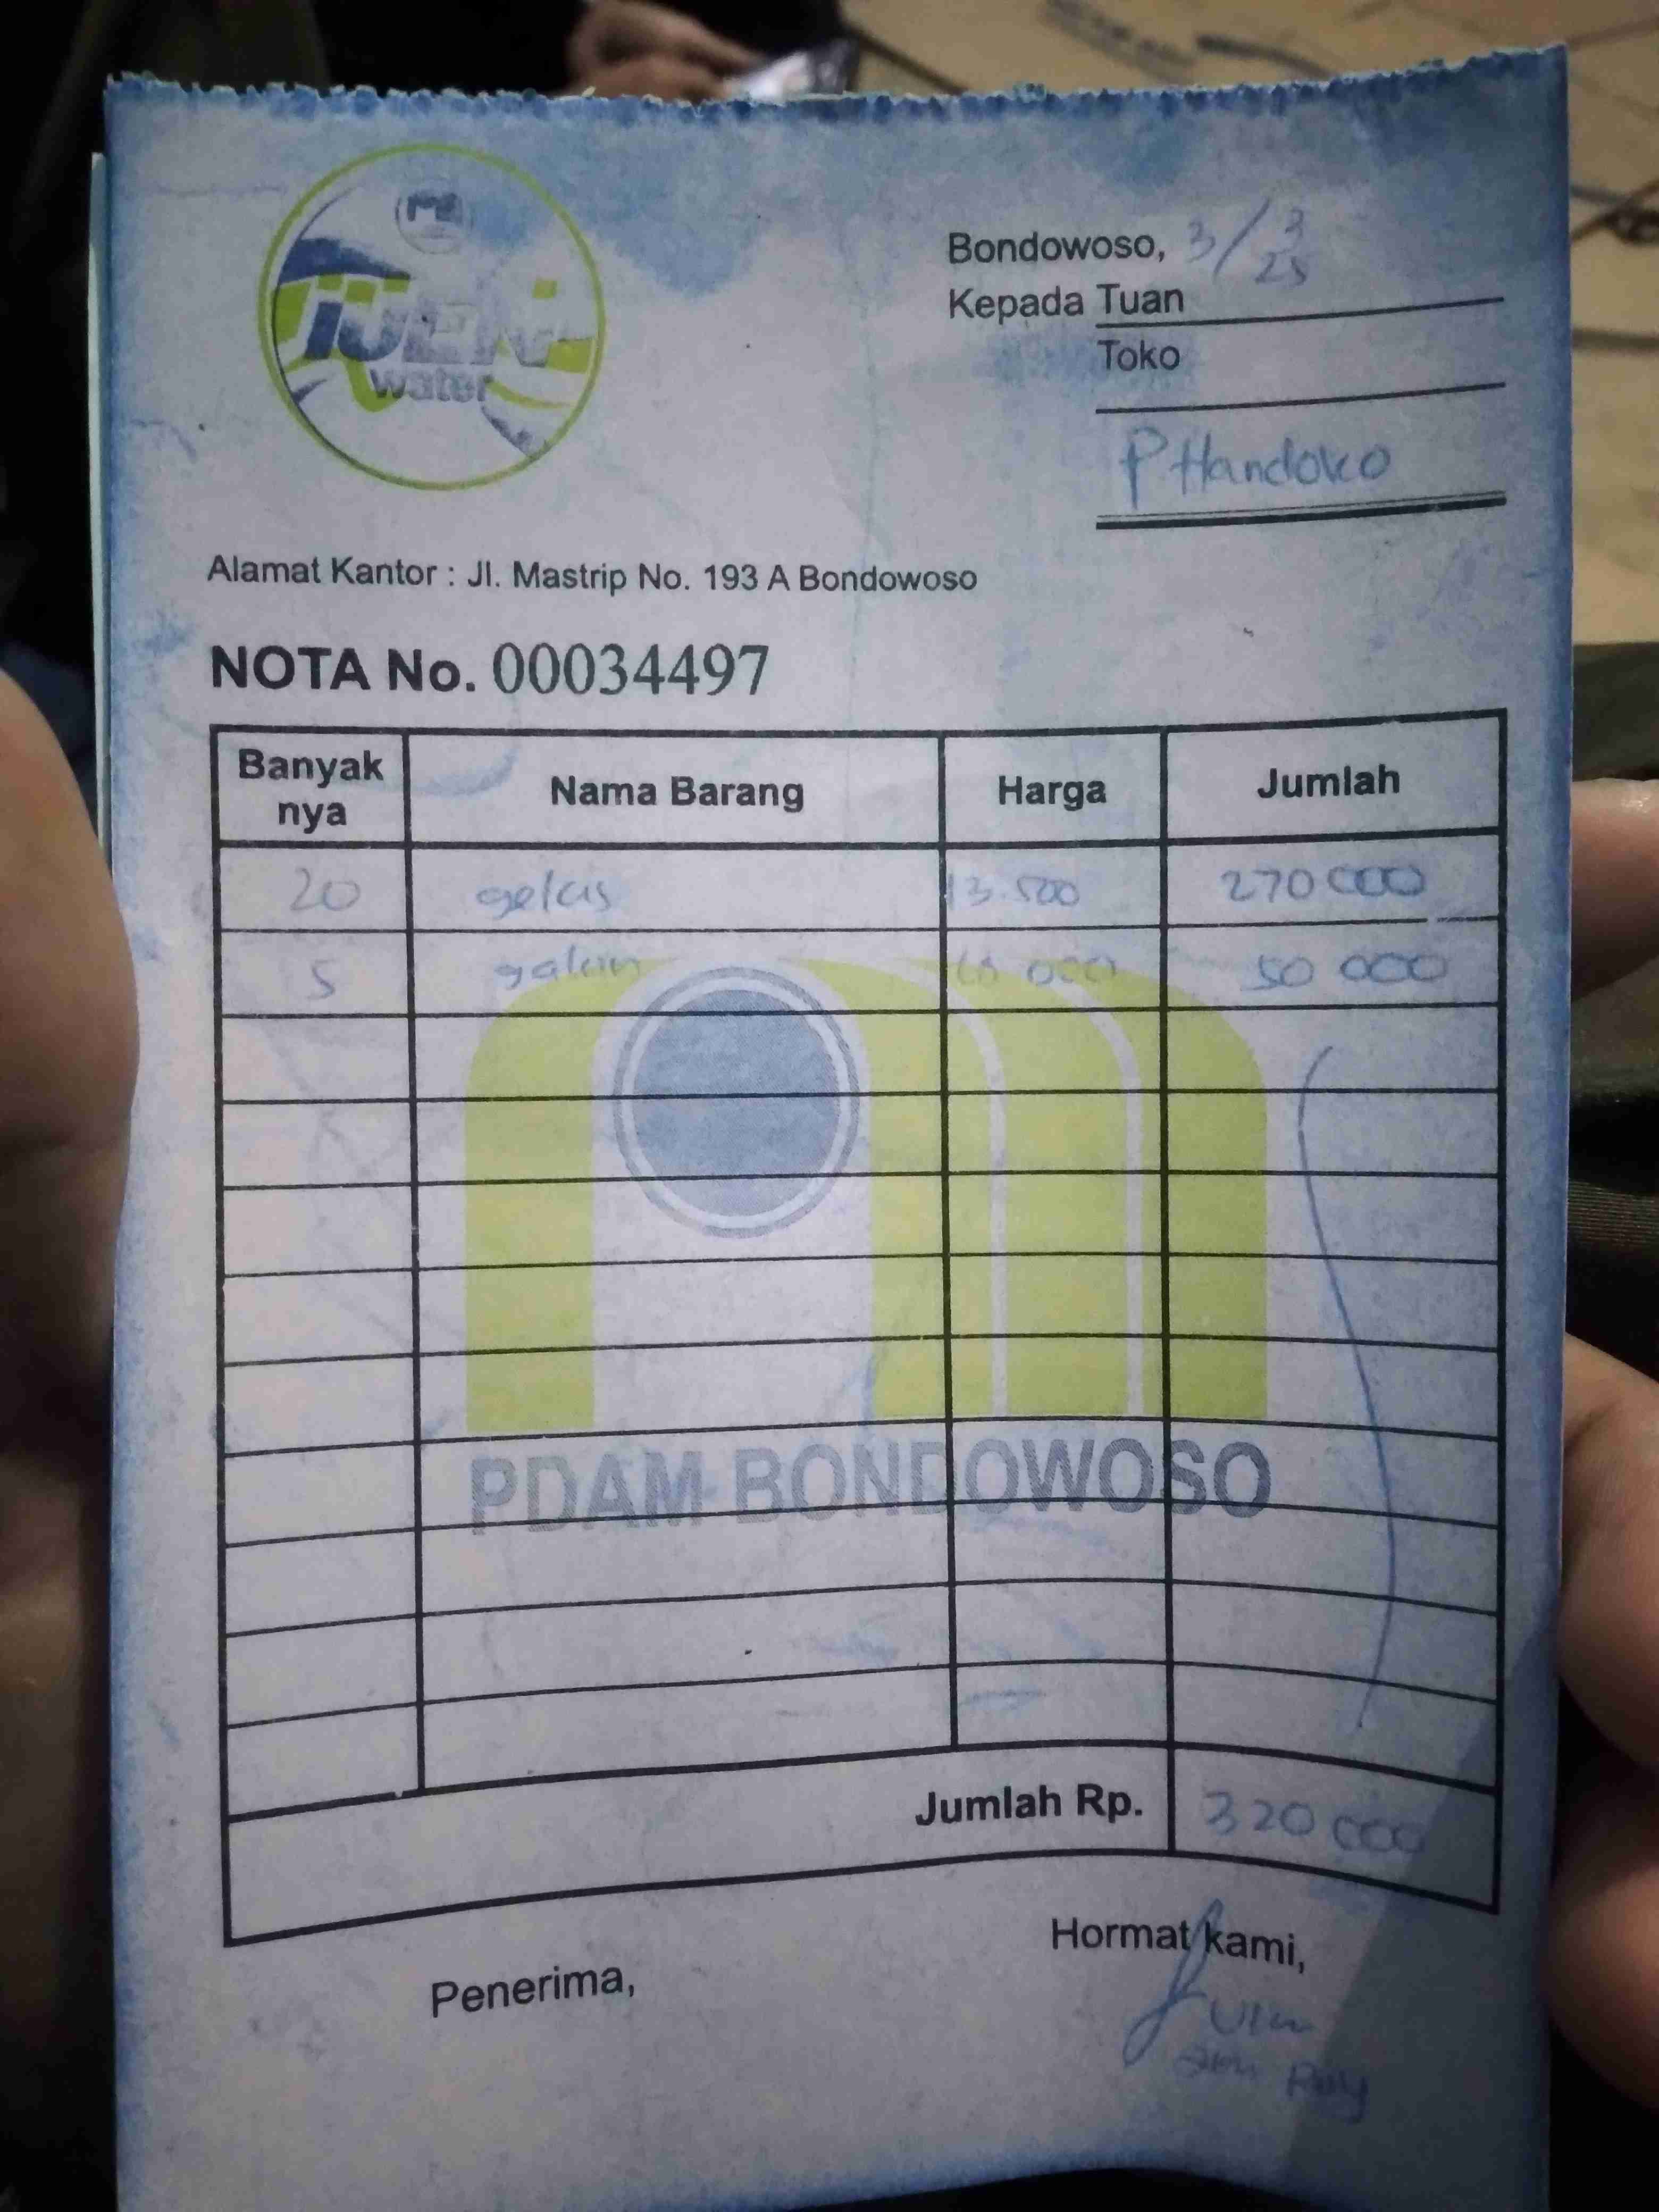 iJEN
water
Bondowoso, 3/3
25
Kepada Tuan
Toko
P Handoko
Alamat Kantor : Jl. Mastrip No. 193 A Bondowoso
NOTA No. 00034497
Banyak nya Nama Barang Harga Jumlah
20 gelas 13.500 270 000
5 galon 10 000 50 000
PDAM BONDOWOSO
Jumlah Rp. 320 000
Hormat kami,
Penerima,